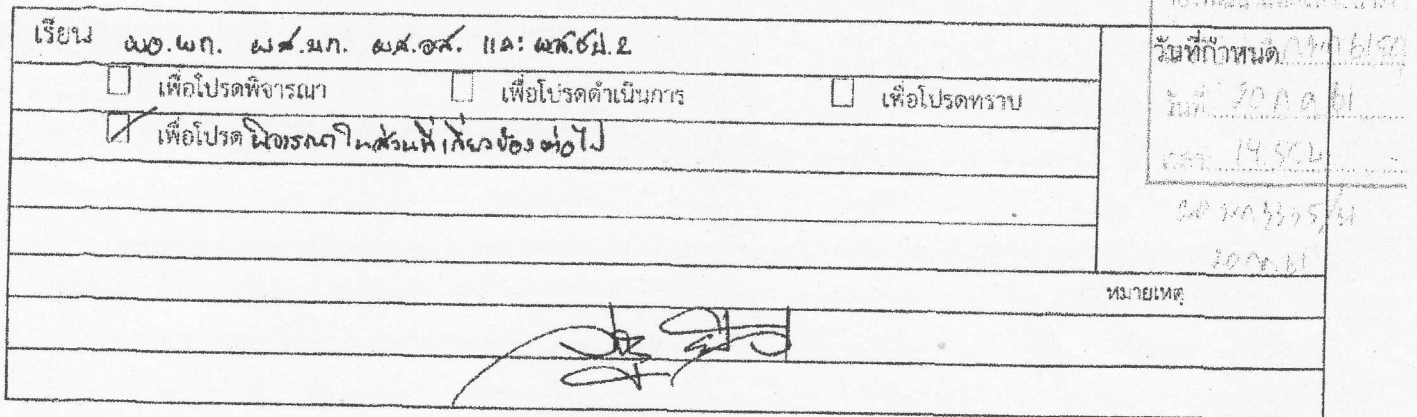 เรียน ผอ.พก. ผส.มก. ผส.อส. และ ผส.ชป.2
วันที่กำหนด
☐ เพื่อโปรดพิจารณา ☐ เพื่อโปรดดำเนินการ ☐ เพื่อโปรดทราบ
☑ เพื่อโปรด พิจารณาในส่วนที่เกี่ยวข้องต่อไป
วันที่ 20 ก.ค. 61
เวลา
20 ก.ค. 61
หมายเหตุ